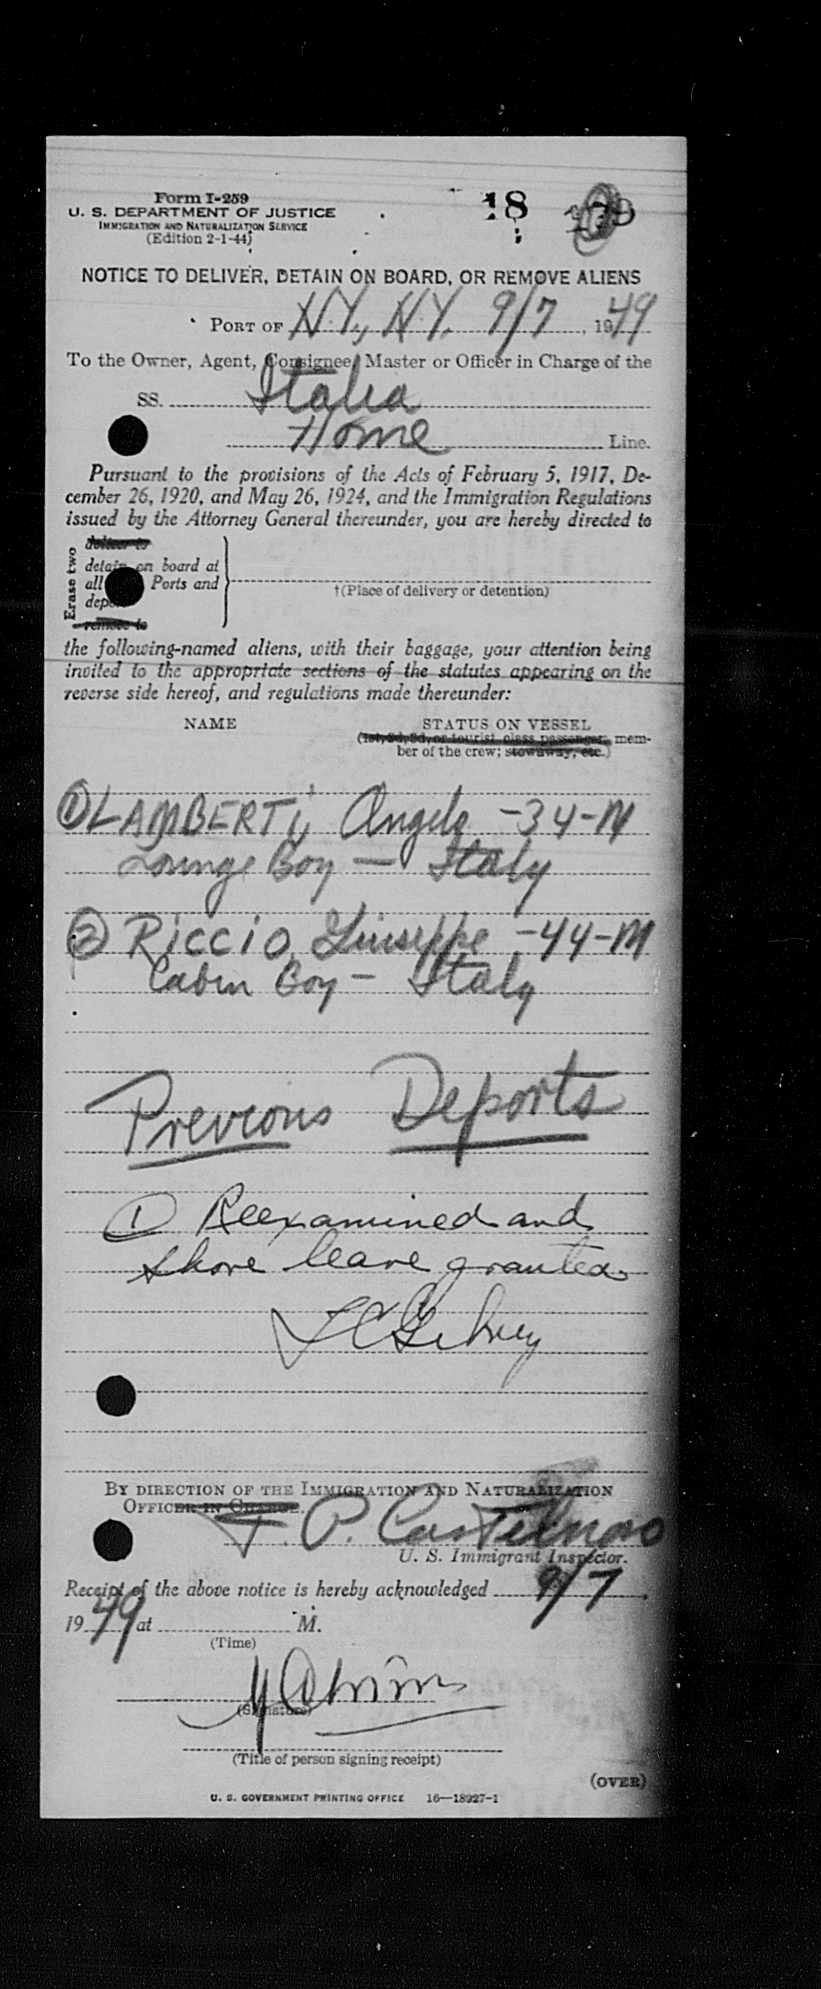 Form I-259
U. S. DEPARTMENT OF JUSTICE
IMMIGRATION AND NATURALIZATION SERVICE
(Edition 2-1-44)
18
NOTICE TO DELIVER, DETAIN ON BOARD, OR REMOVE ALIENS
PORT OF N.Y., N.Y. 9/7, 1949
To the Owner, Agent, Consignee, Master or Officer in Charge of the
SS. Italia
Home Line.
Pursuant to the provisions of the Acts of February 5, 1917, De-
cember 26, 1920, and May 26, 1924, and the Immigration Regulations
issued by the Attorney General thereunder, you are hereby directed to
Erase two
deliver to
detain on board at
all Ports and
remove to
†(Place of delivery or detention)
the following-named aliens, with their baggage, your attention being
invited to the appropriate sections of the statutes appearing on the
reverse side hereof, and regulations made thereunder:
NAME STATUS ON VESSEL
(1st, 2d, 3d, or tourist class passenger; mem-
ber of the crew; stowaway, etc.)
① LAMBERTi, Angelo - 34 - M
Lounge Boy — Italy
② Riccio, Giuseppe - 44 - M
Cabin Boy - Italy
Previous Deports
① Reexamined and
shore leave granted
BY DIRECTION OF THE IMMIGRATION AND NATURALIZATION
OFFICER IN CHARGE.
U. S. Immigrant Inspector.
Receipt of the above notice is hereby acknowledged 9/7,
1949 at M.
(Time)
(Signature)
(Title of person signing receipt)
(OVER)
U. S. GOVERNMENT PRINTING OFFICE 16—18927-1